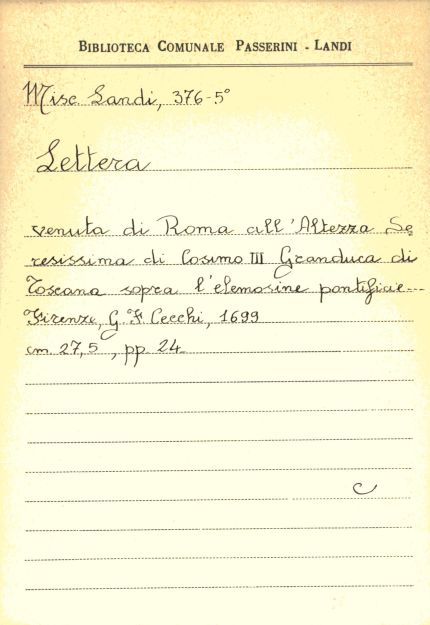 BIBLIOTECA COMUNALE PASSERINI - LANDI
Misc. Landi, 376-5°
Lettera
venuta di Roma all'Altezza Se
resissima di Cosimo III Granduca di
Toscana sopra l'elemosine pontificie...
Firenze, G. F. Cecchi, 1699
cm. 27,5, pp. 24.
C